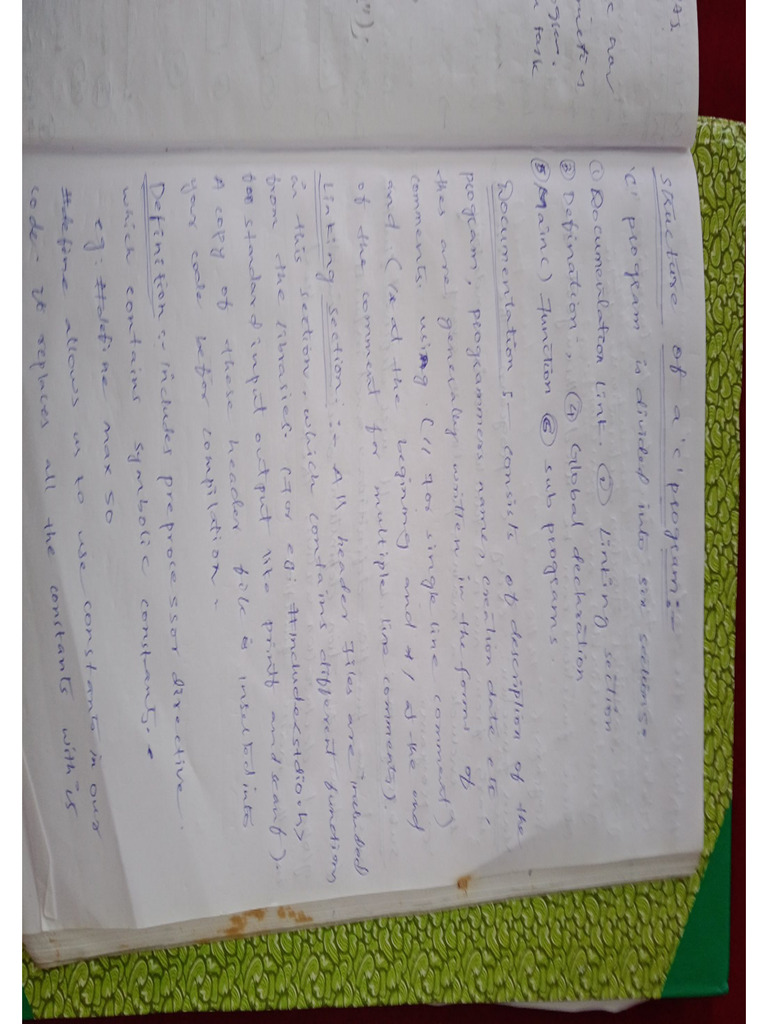 Structure of a 'C' program:-
'C' program is divided into six sections
① Documentation link. ② Linking section
③ Defination:, ④ Global declaration
⑤ Main() function ⑥ sub programs
Documentation :- consists of description of the
program, programmers name, creation date etc,
thes are generally written in the forms of
comments using (// for single line comment)
and (/* at the beginning and */ at the end
of the comment for multiple line comments).
Linking section :- All header files are included
in this section, which contains different functions
from the libraries. (For eg: #include<stdio.h>
for standard input output like printf and scanf).
A copy of these header file is inserted into
your code before compilation.
Definition :- includes preprocessor directive
which contains symbolic constants.
eg: #define max 50
#define allows us to use constants in our
code. It replaces all the constants with is
");
e nav
task